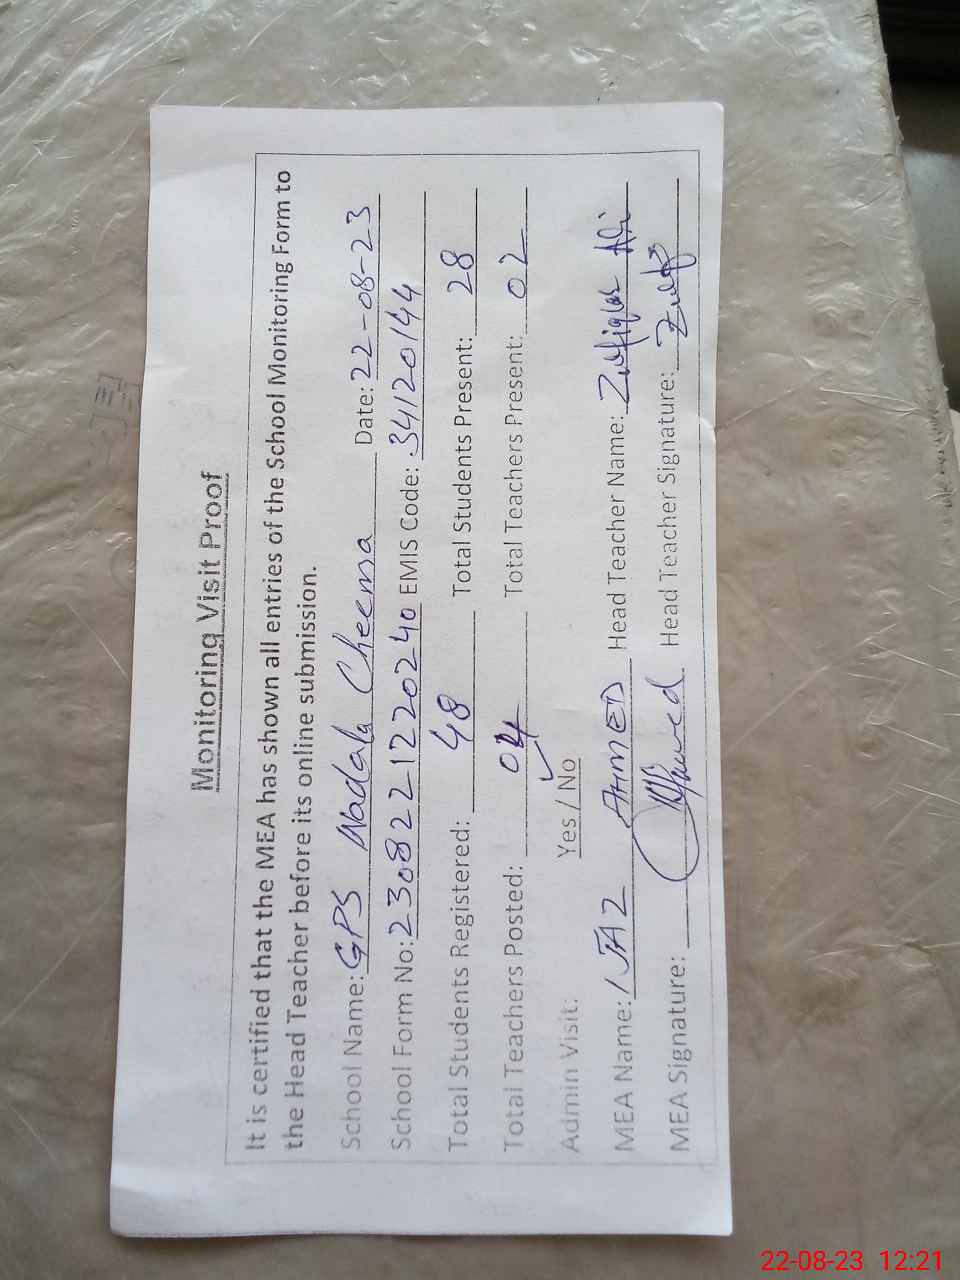 Monitoring Visit Proof
It is certified that the MEA has shown all entries of the School Monitoring Form to
the Head Teacher before its online submission.
School Name: GPS Nadala Cheema Date: 22-08-23
School Form No: 2308221220240 EMIS Code: 34120144
Total Students Registered: 48 Total Students Present: 28
Total Teachers Posted: 04 Total Teachers Present: 02
Admin Visit: Yes / No
MEA Name: AHMED Head Teacher Name: Zulfiqar Ali
MEA Signature: Head Teacher Signature:
22-08-23 12:21